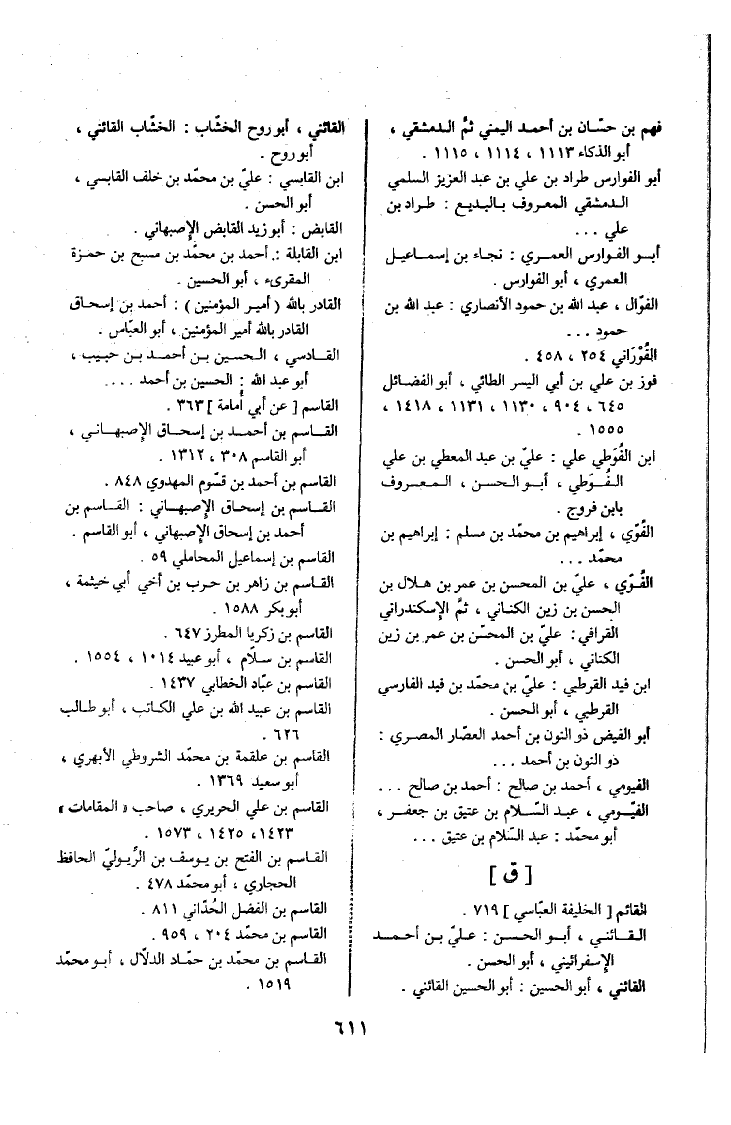 فهم بن حسّان بن أحمد اليمني ثمَّ الدمشقي ،
أبو الذكاء ١١١٣ ، ١١١٤ ، ١١١٥ .
أبو الفوارس طراد بن علي بن عبد العزيز السلمي
الدمشقي المعروف بالبديع : طراد بن
علي ...
أبو الفوارس العمري : نجاء بن إسماعيل
العمري ، أبو الفوارس .
الفوّال ، عبد الله بن حمود الأنصاري : عبد الله بن
حمود ...
الفُوْرَاني ٢٥٤ ، ٤٥٨ .
فوز بن علي بن أبي اليسر الطائي ، أبو الفضائل
٦٤٥ ، ٩٠٤ ، ١١٣٠ ، ١١٣١ ، ١٤١٨ ،
١٥٥٥ .
ابن الفُوَطي علي : عليّ بن عبد المعطي بن علي
الفُوَطي ، أبو الحسن ، المعروف
بابن فروج .
الفُوّي ، إبراهيم بن محمّد بن مسلم : إبراهيم بن
محمّد ...
الفُوّي ، عليّ بن المحسن بن عمر بن هلال بن
الحسن بن زين الكناني ، ثمَّ الإسكندراني
القرافي : عليّ بن المحسّن بن عمر بن زين
الكناني ، أبو الحسن .
ابن فيد القرطبي : عليّ بن محمّد بن فيد الفارسي
القرطبي ، أبو الحسن .
أبو الفيض ذو النون بن أحمد العصّار المصري :
ذو النون بن أحمد ...
الفيومي ، أحمد بن صالح : أحمد بن صالح ...
الفيّومي ، عبد السّلام بن عتيق بن جعفر ،
أبو محمّد : عبد السّلام بن عتيق ...
[ ق ]
القائم [ الخليفة العبّاسي ] ٧١٩ .
القائني ، أبو الحسن : عليّ بن أحمد
الإسفرائيني ، أبو الحسن .
القائني ، أبو الحسين : أبو الحسين القائني .
القائني ، أبو روح الخشّاب : الخشّاب القائني ،
أبو روح .
ابن القابسي : عليّ بن محمّد بن خلف القابسي ،
أبو الحسن .
القابض : أبو زيد القابض الإصبهاني .
ابن القابلة : أحمد بن محمّد بن مسبح بن حمزة
المقرىء ، أبو الحسين .
القادر بالله ( أمير المؤمنين ) : أحمد بن إسحاق
القادر بالله أمير المؤمنين ، أبو العبّاس .
القادسي ، الحسين بن أحمد بن حبيب ،
أبو عبد الله : الحسين بن أحمد ....
القاسم [ عن أبي أُمامة ] ٣٦٣ .
القاسم بن أحمد بن إسحاق الإصبهاني ،
أبو القاسم ٣٠٨ ، ١٣١٢ .
القاسم بن أحمد بن قسّوم المهدوي ٨٤٨ .
القاسم بن إسحاق الإصبهاني : القاسم بن
أحمد بن إسحاق الإصبهاني ، أبو القاسم .
القاسم بن إسماعيل المحاملي ٥٩ .
القاسم بن زاهر بن حرب بن أخي أبي خيثمة ،
أبو بكر ١٥٨٨ .
القاسم بن زكريا المطرز ٦٤٧ .
القاسم بن سلّام ، أبو عبيد ١٠١٤ ، ١٥٥٤ .
القاسم بن عبّاد الخطابي ١٤٣٧ .
القاسم بن عبيد الله بن علي الكاتب ، أبو طالب
٦٢٦ .
القاسم بن علقمة بن محمّد الشروطي الأبهري ،
أبو سعيد ١٣٦٩ .
القاسم بن علي الحريري ، صاحب « المقامات »
١٤٢٣، ١٤٢٥ ، ١٥٧٣ .
القاسم بن الفتح بن يوسف بن الرِّيوليّ الحافظ
الحجاري ، أبو محمّد ٤٧٨ .
القاسم بن الفضل الحُدّاني ٨١١ .
القاسم بن محمّد ٢٠٤ ، ٩٥٩ .
القاسم بن محمّد بن حمّاد الدلّال ، أبو محمّد
١٥١٩ .
٦١١